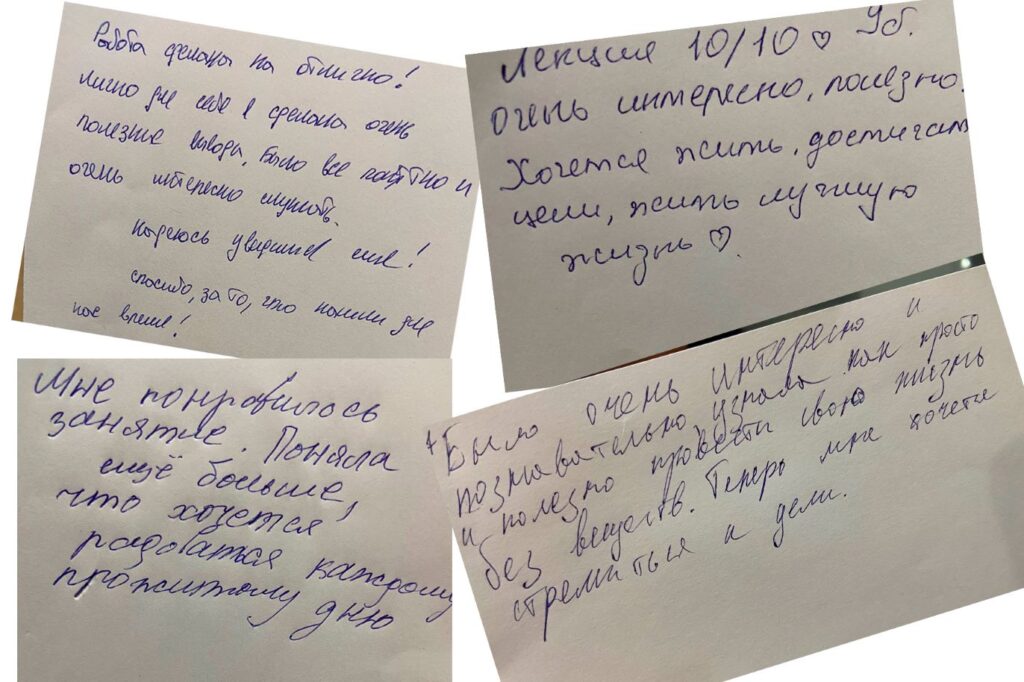 Работа сделана на отлично!
Лично для себя я сделала очень
полезные выводы, было все понятно и
очень интересно слушать.
Надеюсь увидимся еще!
спасибо, за то, что нашли для
нас время!
Лекция 10/10♡ Уб.
очень интересно, полезно.
Хочется жить, достигать
цели, жить лучшую
жизнь♡.
Мне понравилось
занятие. Поняла
ещё больше,
что хочется
радоватся каждому
прожитому дню
Было очень интересно и
познавательно, узнала как просто
и полезно провести свою жизнь
без веществ. Теперь мне хочется
стремиться к цели.